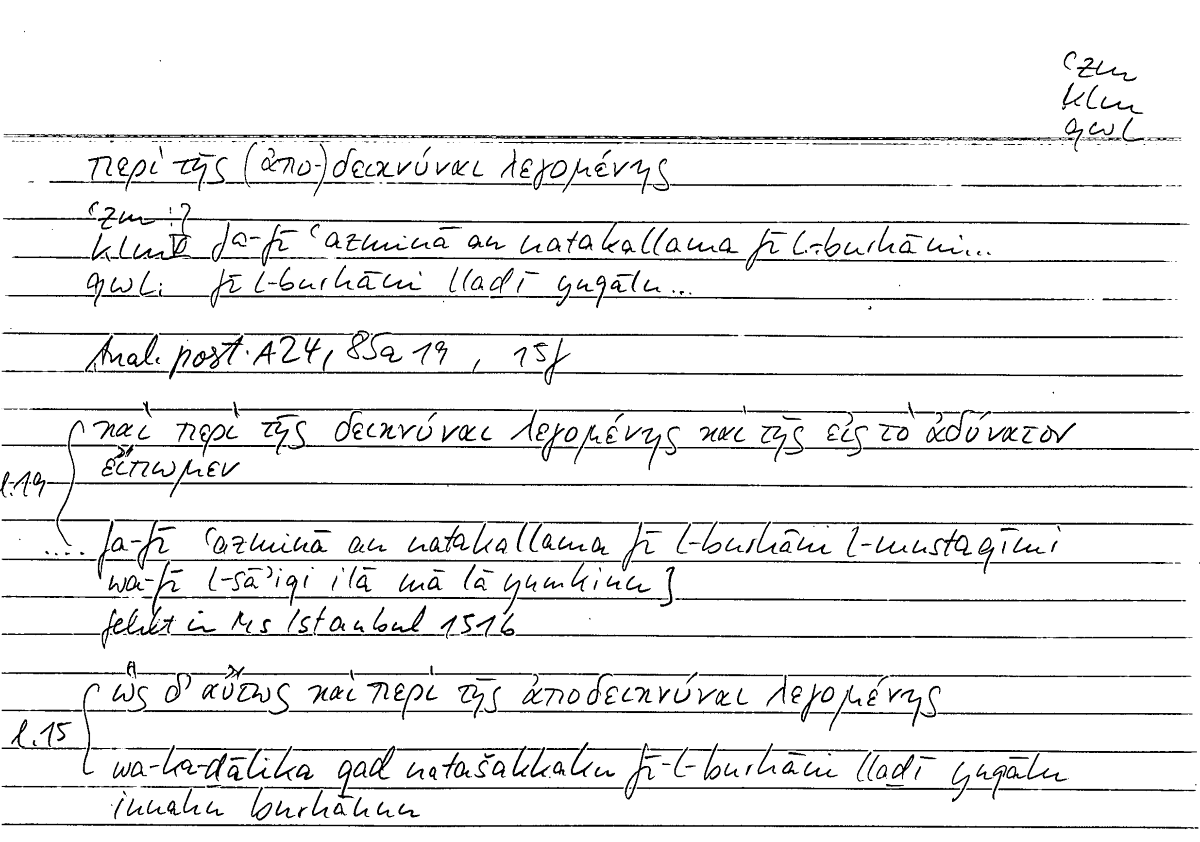 ʿzm
klm
qwl
περὶ τῆς (ἀπο-)δεικνύναι λεγομένης
ʿzm :?
klm V fa-fī ʿazminā an natakallama fī l-burhāni...
qwl: fī l-burhāni lladī yuqālu...
Anal. post. A24, 85a 19 , 15f
καὶ περὶ τῆς δεικνύναι λεγομένης καὶ τῆς εἰς τὸ ἀδύνατον
εἴπωμεν
l.19
.... fa-fī ʿazminā an natakallama fī l-burhāni l-mustaqīmi
wa-fī l-sāʾiqi ilā mā lā yumkinu]
fehlt in Ms Istanbul 1516
ὣς δ' αὔτως καὶ περὶ τῆς ἀποδεικνύναι λεγομένης
l.15
wa-ka-dālika qad natašakkaku fī-l-burhāni llaḏī yuqālu
innahu burhānun